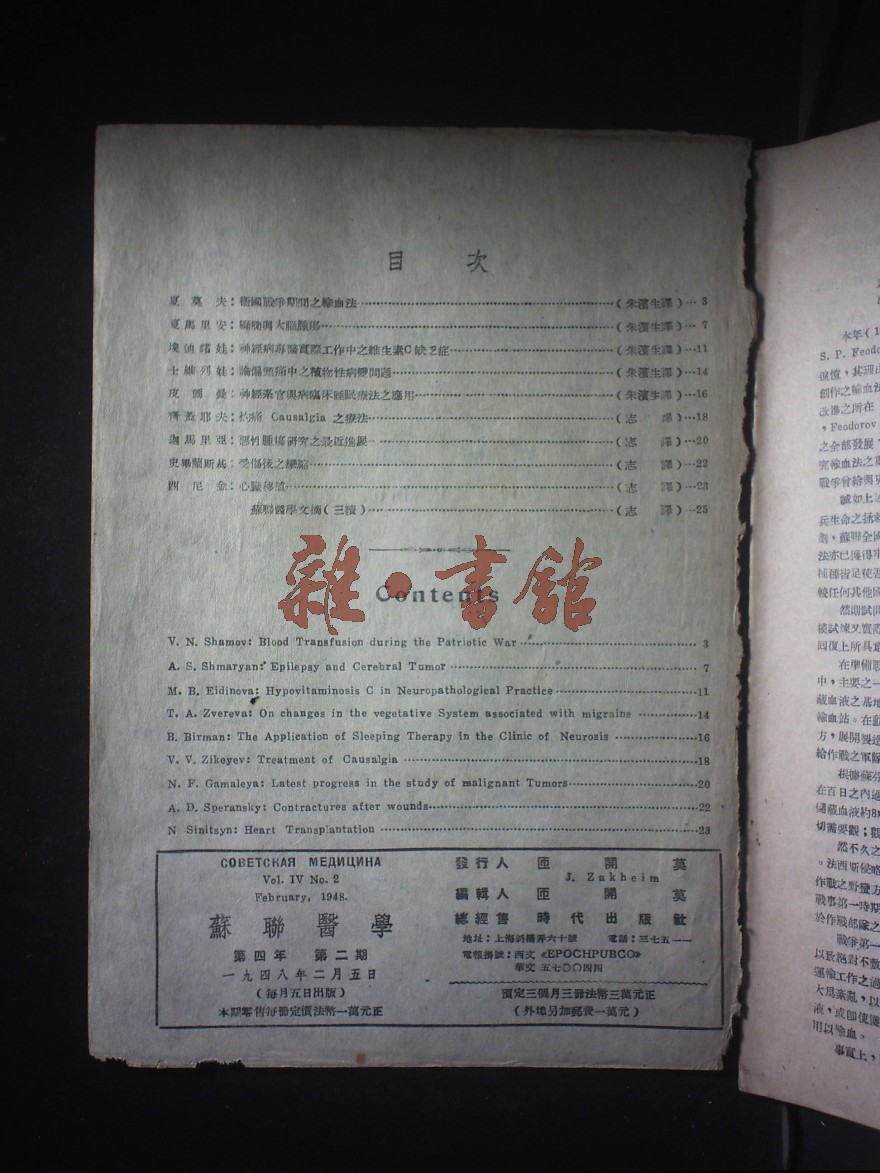 目 次
夏莫夫：衛國戰爭期間之輸血法（朱濱生譯）3
夏馬里安：癲癎與大腦腫瘍（朱濱生譯）7
埃迪諾娃：神經病專醫實際工作中之維生素C缺乏症（朱濱生譯）11
士維列娃：論偏頭痛中之植物性病變問題（朱濱生譯）14
皮爾曼：神經系官興病臨床睡眠療法之應用（朱濱生譯）16
齊蓋耶夫：灼痛 Causalgia 之療法（志譯）18
迦馬里亞：惡性腫瘍研究之最近進展（志譯）20
史畢蘭斯基：受傷後之攣縮（志譯）22
西尼金：心臟移殖（志譯）23
蘇聯醫學文摘（三續）（志譯）25
雜·書館
Contents
V. N. Shamov: Blood Transfusion during the Patriotic War 3
A. S. Shmaryan: Epilepsy and Cerebral Tumor 7
M. B. Eidinova: Hypovitaminosis C in Neuropathological Practice 11
T. A. Zvereva: On changes in the vegetative System associated with migraine 14
B. Birman: The Application of Sleeping Therapy in the Clinic of Neurosis 16
V. V. Zikeyev: Treatment of Causalgia 18
N. F. Gamaleya: Latest progress in the study of malignant Tumors 20
A. D. Speransky: Contractures after wounds 22
N. Sinitsyn: Heart Transplantation 23
СОВЕТСКАЯ МЕДИЦИНА
Vol. IV No. 2
February, 1948.
蘇聯醫學
第四年 第二期
一九四八年二月五日
（每月五日出版）
本期零售每冊定價法幣一萬元正
發行人 匝開莫
J. Zakheim
編輯人 匝開莫
總經售 時代出版社
地址：上海斜橋弄六十號 電話：三七五一一
電報掛號：西文 «EPOCHPUBCO»
華文 五七〇〇四四
預定三個月三冊法幣三萬元正
（外埠另加郵費一萬元）
本年（1
S. P. Feodo
創作之輸血法
改進之所在
，Feodorov
之全部發展
究輸血法之
戰爭曾給與
誠如上述
兵生命之拯救
劇，蘇聯全國
法亦已獲得
補種術足使
較任何其他國
然則試問
模試煉又實際
回復上所具
在準備戰
中，主要之一
蔵血液之基地
輸血站。在
方，展開製造
給作戰之軍隊
根據蘇
在百日之內
儲蔵血液約8
切需要觀；
然不久之
。法西斯侵略
作戰之野蠻方
戰事第一時期
於作戰部隊之
戰爭第一
以致絕對不數
運輸工作之
大為紊亂，以
液，或即使
用以輸血。
事實上，